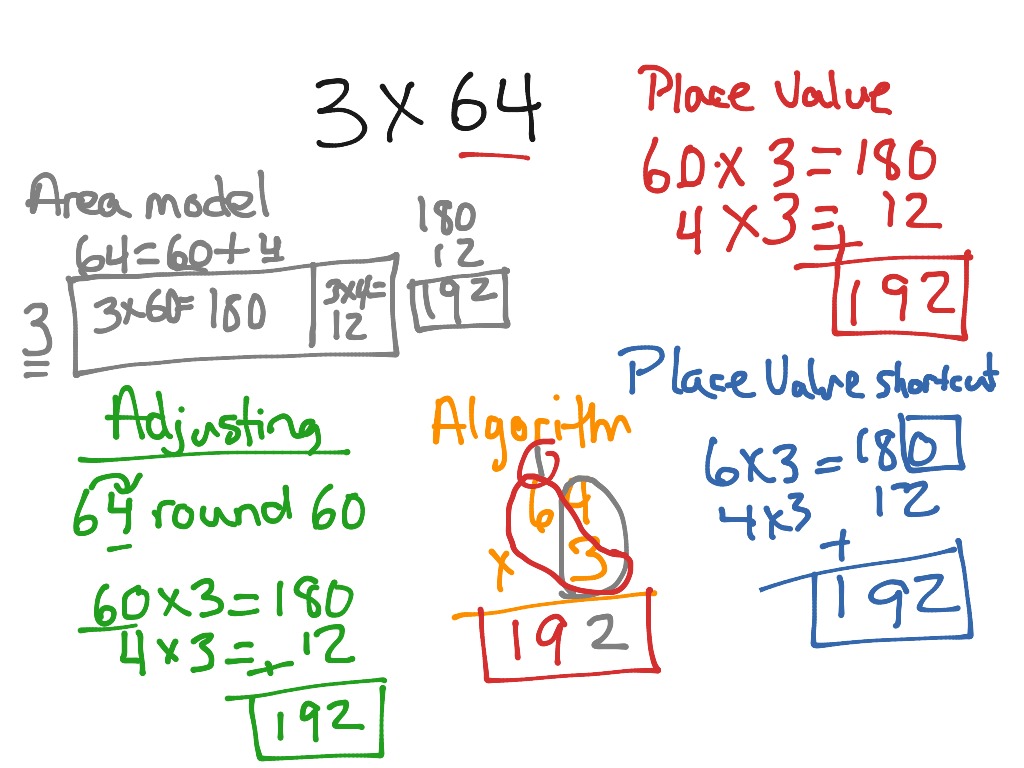 3 × 64
Area model
64 = 60 + 4
3
3×60= 180
3×4=
12
180
12
192
Place Value
60 × 3 = 180
4 × 3 = 12
+
192
Place Value shortcut
6 × 3 = 180
4 × 3 12
+
192
Adjusting
64 round 60
60 × 3 = 180
4 × 3 = + 12
192
Algorithm
1
64
× 3
192